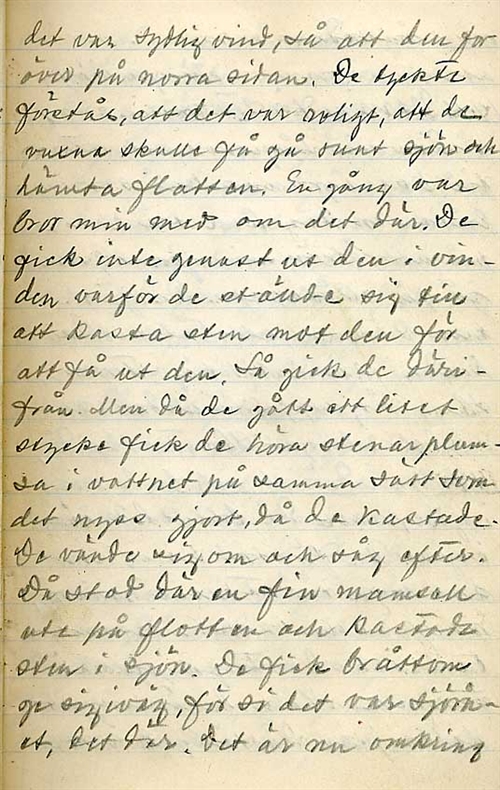 det var sydlig vind, så att den for
över på norra sidan. De tyckte
förstås, att det var roligt, att de
vuxna skulle få gå runt sjön och
hämta flotten. En gång var
bror min med om det där. De
fick inte genast ut den i vin-
den varför de stände sig till
att kasta sten mot den för
att få ut den. Så gick de däri-
från. Men då de gått ett litet
stycke fick de höra stenar plum-
sa i vattnet på samma sätt som
det nyss gjort, då de kastade.
De vände sig om och såg efter.
Då stod där en fin mamsell
ute på flotten och kastade
sten i sjön. De fick bråttom
ge sig iväg, för si det var sjörå-
et, det där. Det är nu omkring